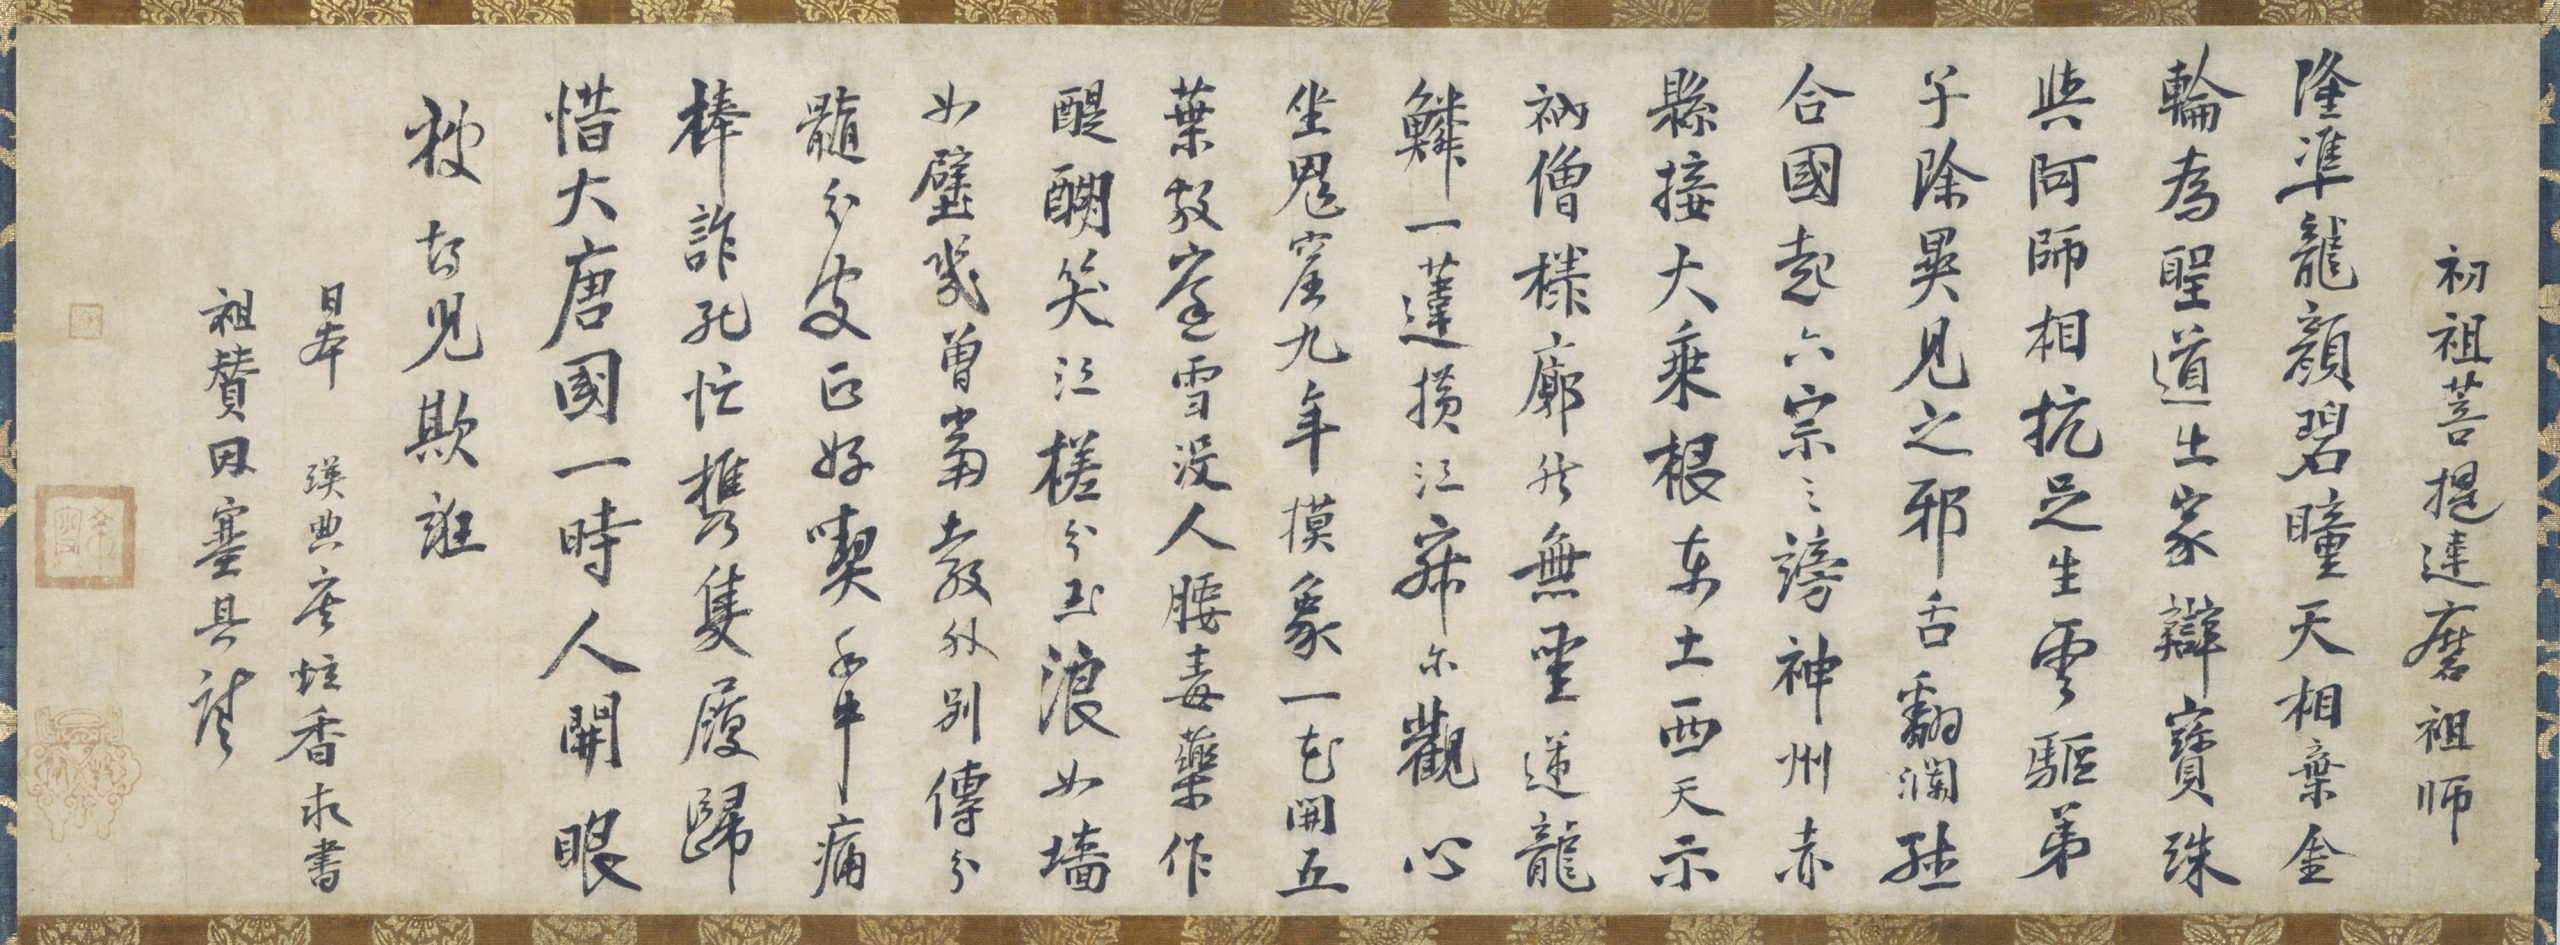 初祖菩提達磨祖師
隆準龍顏碧瞳天相棄金
輪為聖道出家辯寶珠
與阿師相抗足生雲驅弟
子除異見之邪舌翻瀾
合國起六宗之謗神州赤
縣接大乘根東土西天示
衲僧樣廓然無聖逆龍
鱗一蘆橫江寂尓觀心
坐鬼窟九年摸象一花開五
葉教庭雪没人腰毒藥作
醍醐笑江槎分玉浪如墻
如壁幾曾當教外別傳分
髓分皮正好喫手中痛
棒詐死忙攜隻履歸
惜大唐國一時人開眼
被胡見欺誑
日本 瑛典座炷香求書
祖賛因塞其請